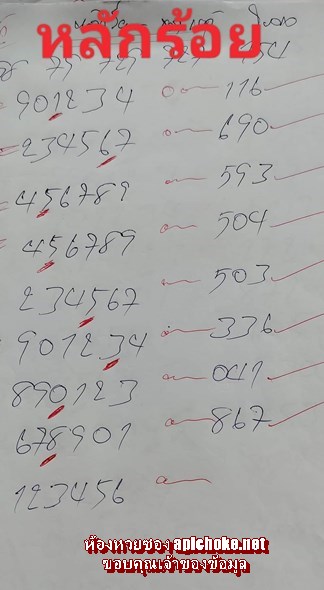 หลักร้อย
901234 116
234567 690
456789 593
456789 504
234567 503
901234 336
890123 041
678901 867
123456
ห้องหวยซอง apichoke.net
ขอบคุณเจ้าของข้อมูล